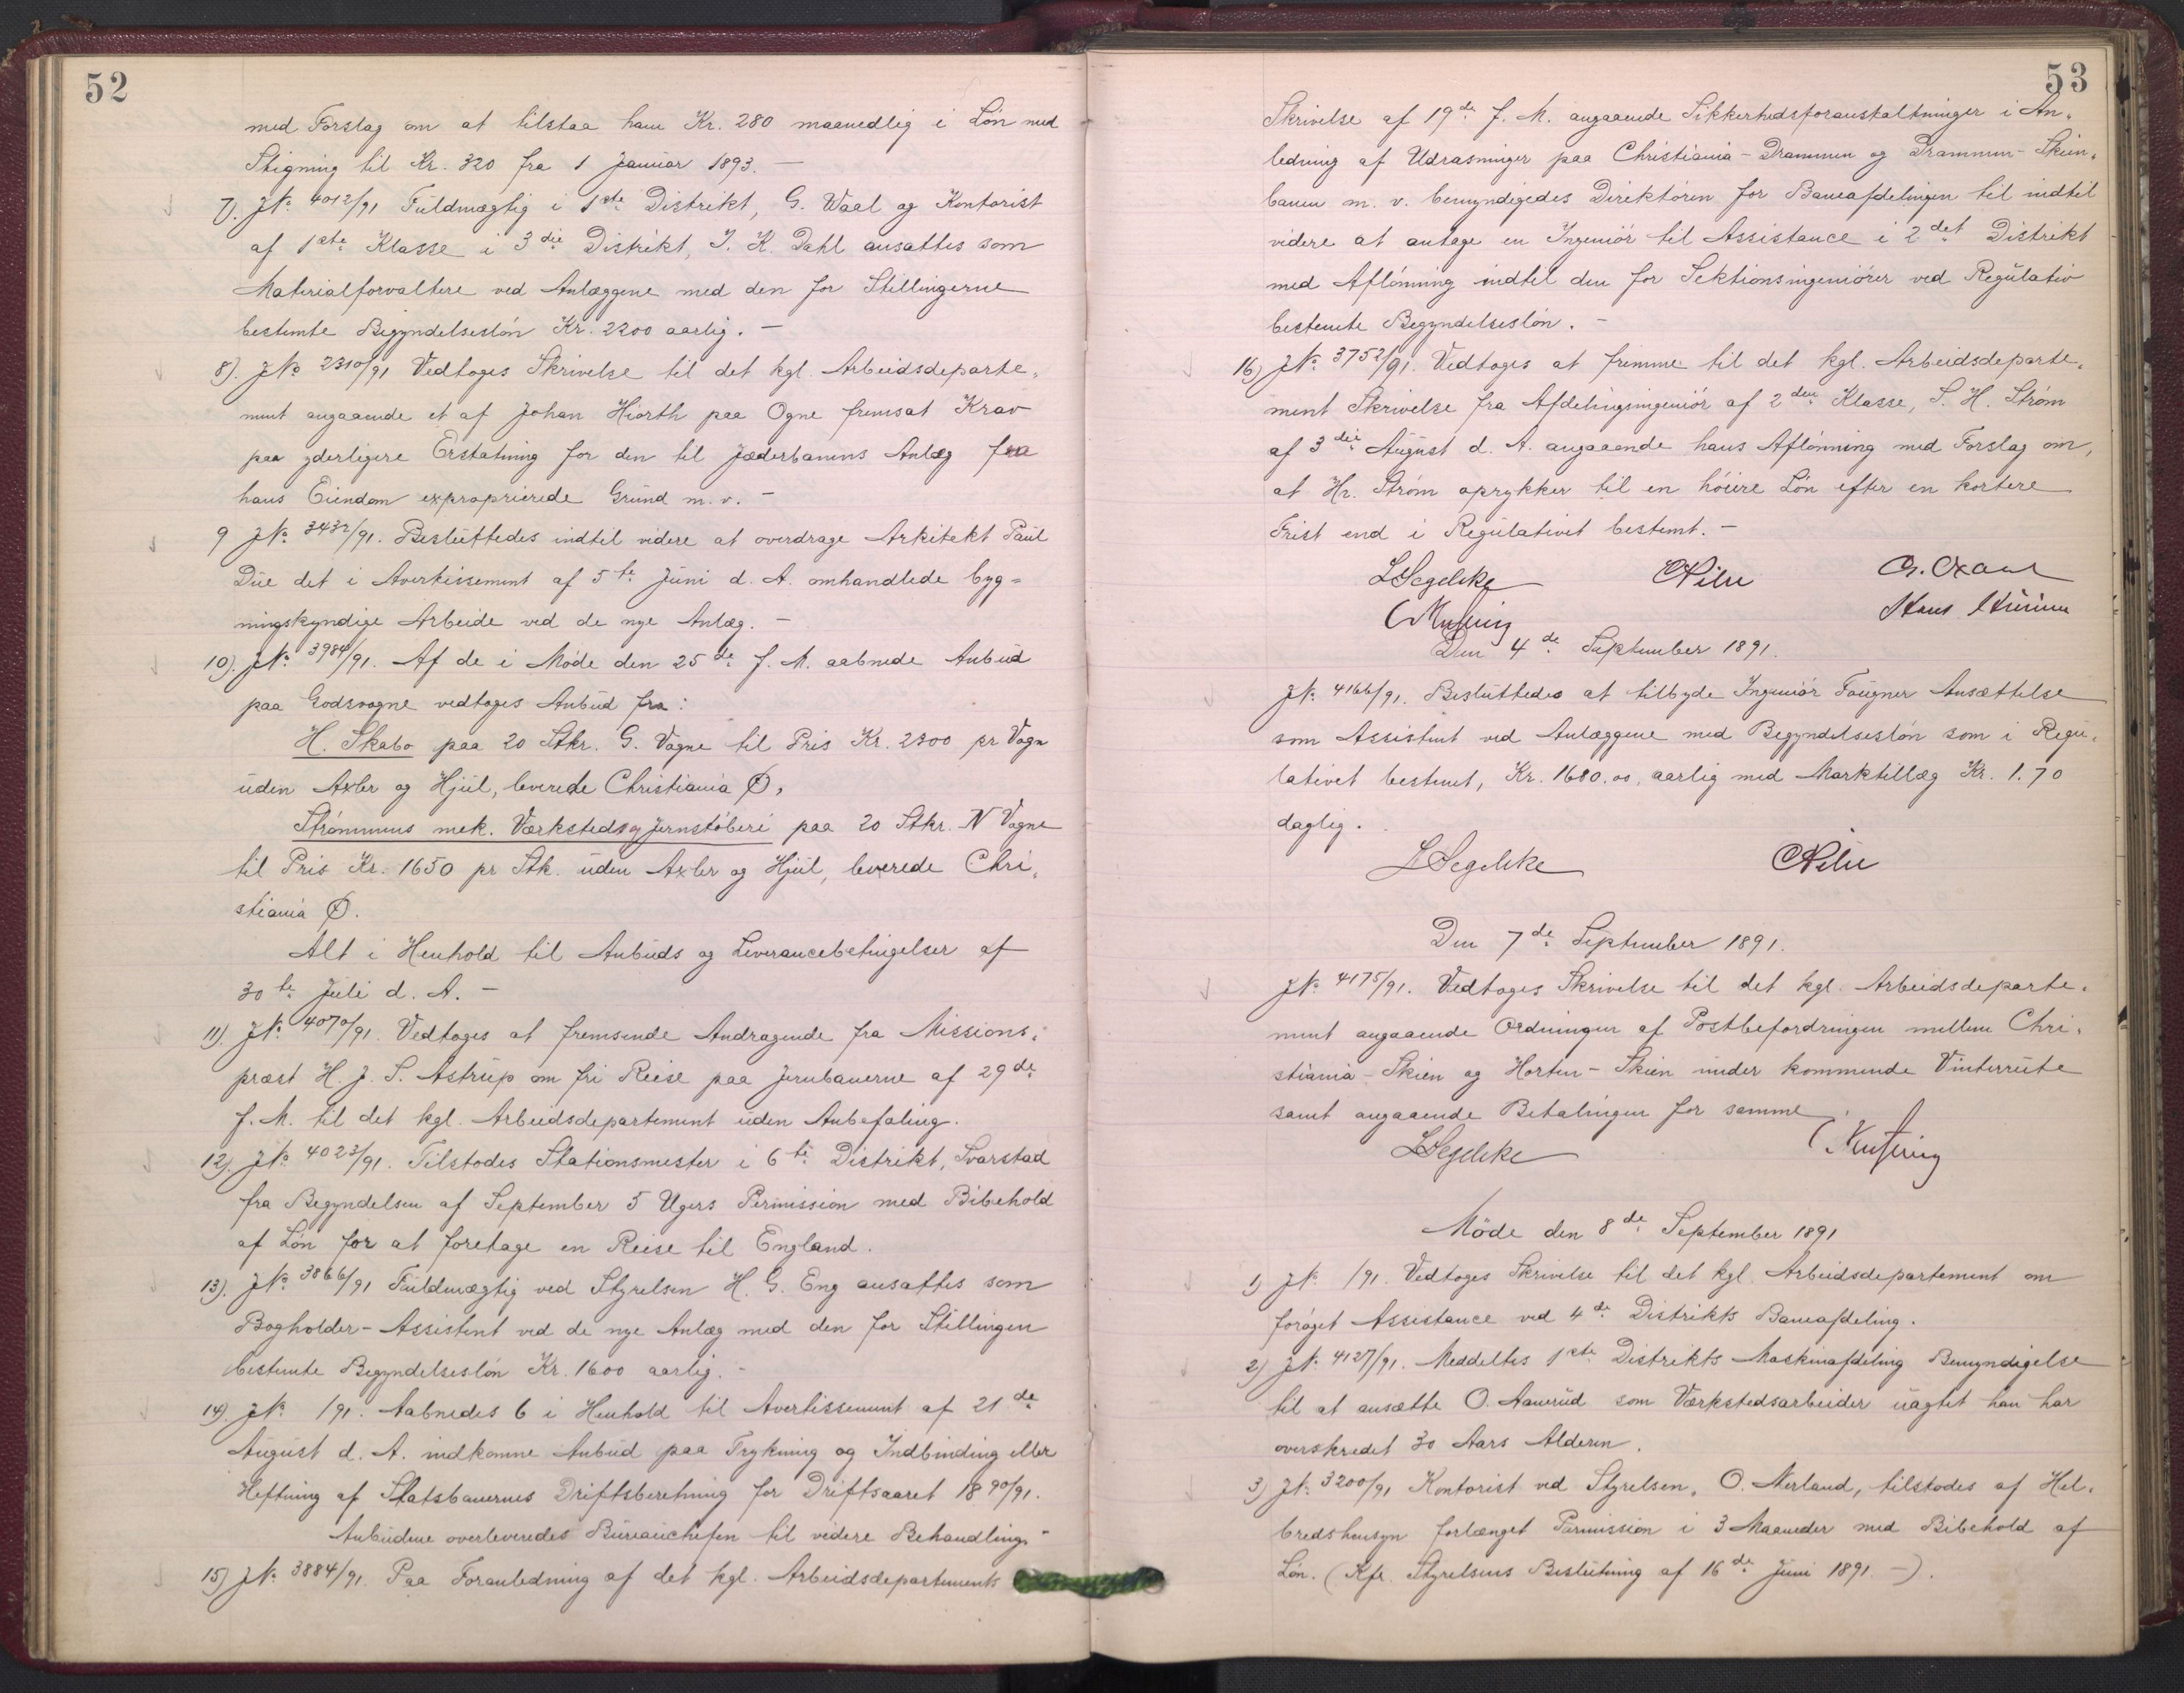 52
med Forslag om at tilstaa ham Kr. 280 maanedlig i Løn med
Stigning til Kr. 320 fra 1 Januar 1893. —
7). JN° 4012/91 Fuldmægtig i 1ste Distrikt, G. Waal og Kontorist
af 1ste Klasse i 3die Distrikt, J. K. Dahl ansattes som
Materialforvaltere ved Anlæggene med den for Stillingerne
bestemte Begyndelsesløn Kr. 2200 aarlig. —
8). JN° 2310/91 Vedtoges Skrivelse til det kgl. Arbeidsdeparte-
ment angaaende et af Johan Hiorth paa Ogne fremsat Krav
paa yderligere Erstatning for den til Jæderbanens Anlæg fra
hans Eiendom exproprierede Grund m. v. —
9 JN° 3432/91. Besluttedes indtil videre at overdrage Arkitekt Paul
Due det i Avertissement af 5te Juni d. A. omhandlede byg=
ningskyndige Arbeide ved de nye Anlæg. —
10). JN° 3984/91. Af de i Møde den 25de f. M. aabnede Anbud
paa Godsvogne vedtoges Anbud fra:
H. Skabo paa 20 Stkr. G. Vogne til Pris Kr. 2300 pr Vogn
uden Axler og Hjul, leverede Christiania Ø,
Strømmens mek. Værksted og Jernstøberi paa 20 Stkr. N Vogne
til Pris Kr. 1650 pr Stk. uden Axler og Hjul, leverede Chri-
stiania Ø.
Alt i Henhold til Anbuds og Leverancebetingelser af
30te Juli d. A. —
11). JN° 4070/91. Vedtoges at fremsende Andragende fra Missions-
præst H. J. S. Astrup om fri Reise paa Jernbanerne af 29de
f. M. til det kgl. Arbeidsdepartement uden Anbefaling.
12). JN° 4023/91. Tilstodes Stationsmester i 6te Distrikt, Svarstad
fra Begyndelsen af September 5 Ugers Permission med Bibehold
af Løn for at foretage en Reise til England.
13). JN° 3866/91 Fuldmægtig ved Styrelsen H. G. Eng ansattes som
Bogholder-Assistent ved de nye Anlæg med den for Stillingen
bestemte Begyndelsesløn Kr. 1600 aarlig. —
14). JN° /91. Aabnedes 6 i Henhold til Avertissement af 21de
August d. A. indkomne Anbud paa Trykning og Indbinding eller
Heftning af Statsbanernes Driftsberetning for Driftsaaret 1890/91.
Anbudene overleveredes Bureauchefen til videre Behandling. —
15) JN° 3884/91. Paa Foranledning af det kgl. Arbeidsdepartements
53
Skrivelse af 19de f. M. angaaende Sikkerhedsforanstaltninger i An-
ledning af Udrasninger paa Christiania-Drammen og Drammen-Skien-
banen m. v. bemyndigedes Direktøren for Baneafdelingen til indtil
videre at antage en Ingeniør til Assistance i 2det Distrikt
med Aflønning indtil den for Sektionsingeniører ved Regulativ
bestemte Begyndelsesløn. —
16) JN° 3752/91. Vedtoges at fremme til det kgl. Arbeidsdeparte-
ment Skrivelse fra Afdelingsingeniør af 2den Klasse, S. H. Strøm
af 3die August d. A. angaaende hans Aflønning med Forslag om,
at Hr. Strøm oprykker til en høiere Løn efter en kortere
Frist end i Regulativet bestemt. —
LSegelcke
Den 4de September 1891.
JN° 4166/91. Besluttedes at tilbyde Ingeniør Fougner Ansættelse
som Assistent ved Anlæggene med Begyndelsesløn som i Regu-
lativet bestemt, Kr. 1680.00. aarlig med Marktillæg Kr. 1.70
daglig.
LSegelcke
Den 7de September 1891.
JN° 4175/91. Vedtoges Skrivelse til det kgl. Arbeidsdeparte-
ment angaaende Ordningen af Postbefordringen mellem Chri-
stiania-Skien og Horten-Skien under kommende Vinterrute
samt angaaende Betalingen for samme.
LSegelcke
Møde den 8de September 1891
1) JN° /91. Vedtoges Skrivelse til det kgl. Arbeidsdepartement om
forøget Assistance ved 4de Distrikts Baneafdeling.
2) JN° 4127/91. Meddeltes 1ste Distrikts Maskinafdeling Bemyndigelse
til at ansætte O. Aanerud som Værkstedsarbeider uagtet han har
overskredet 30 Aars Alderen.
3) JN° 3200/91 Kontorist ved Styrelsen, O. Nerland, tilstodes af Hel-
bredshensyn forlænget Permission i 3 Maaneder med Bibehold af
Løn. (Kfr. Styrelsens Beslutning af 16de Juni 1891 —).